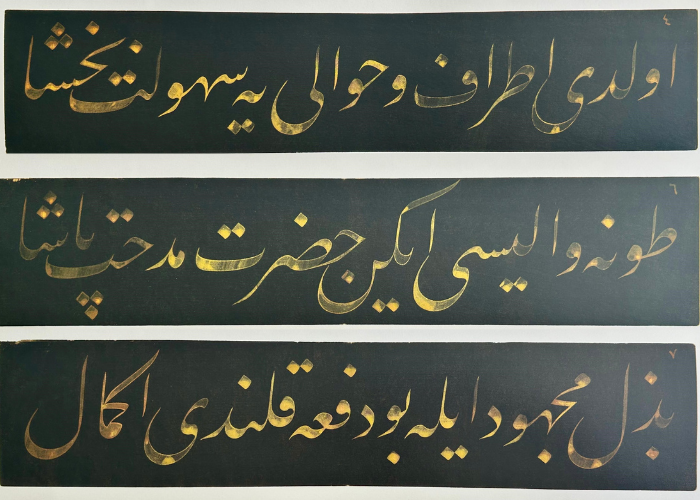 ٤
اولدی اطراف و حوالی یه سهولت بخشا
٦
طونه والیسی ایکن حضرت مدحت پاشا
٧
بذل مجهود ایله بو دفعه قلندی اکمال